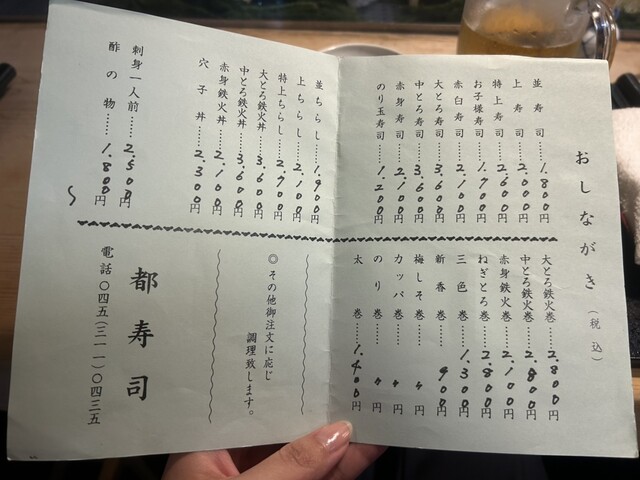 おしながき（税込）
並寿司……1.800円
上寿司……2.000円
特上寿司……2.600円
お子様寿司……1.700円
赤白寿司……2.100円
大とろ寿司……3.600円
中とろ寿司……3.600円
赤身寿司……2.100円
のり玉寿司……1.200円
大とろ鉄火巻……2.800円
中とろ鉄火巻……2.800円
赤身鉄火巻……2.100円
ねぎとろ巻……2.800円
三色巻……1.300円
新香巻……900円
梅しそ巻……〃円
カッパ巻……〃円
のり巻……〃円
太巻……1.400円
並ちらし……1.900円
上ちらし……2.100円
特上ちらし……2.900円
大とろ鉄火丼……3.600円
中とろ鉄火丼……3.600円
赤身鉄火丼……2.100円
穴子丼……2.300円
刺身一人前……2.500円
酢の物……1.800円〜
◎その他御注文に応じ
調理致します。
都寿司
電話〇四五(三一一)〇四三五